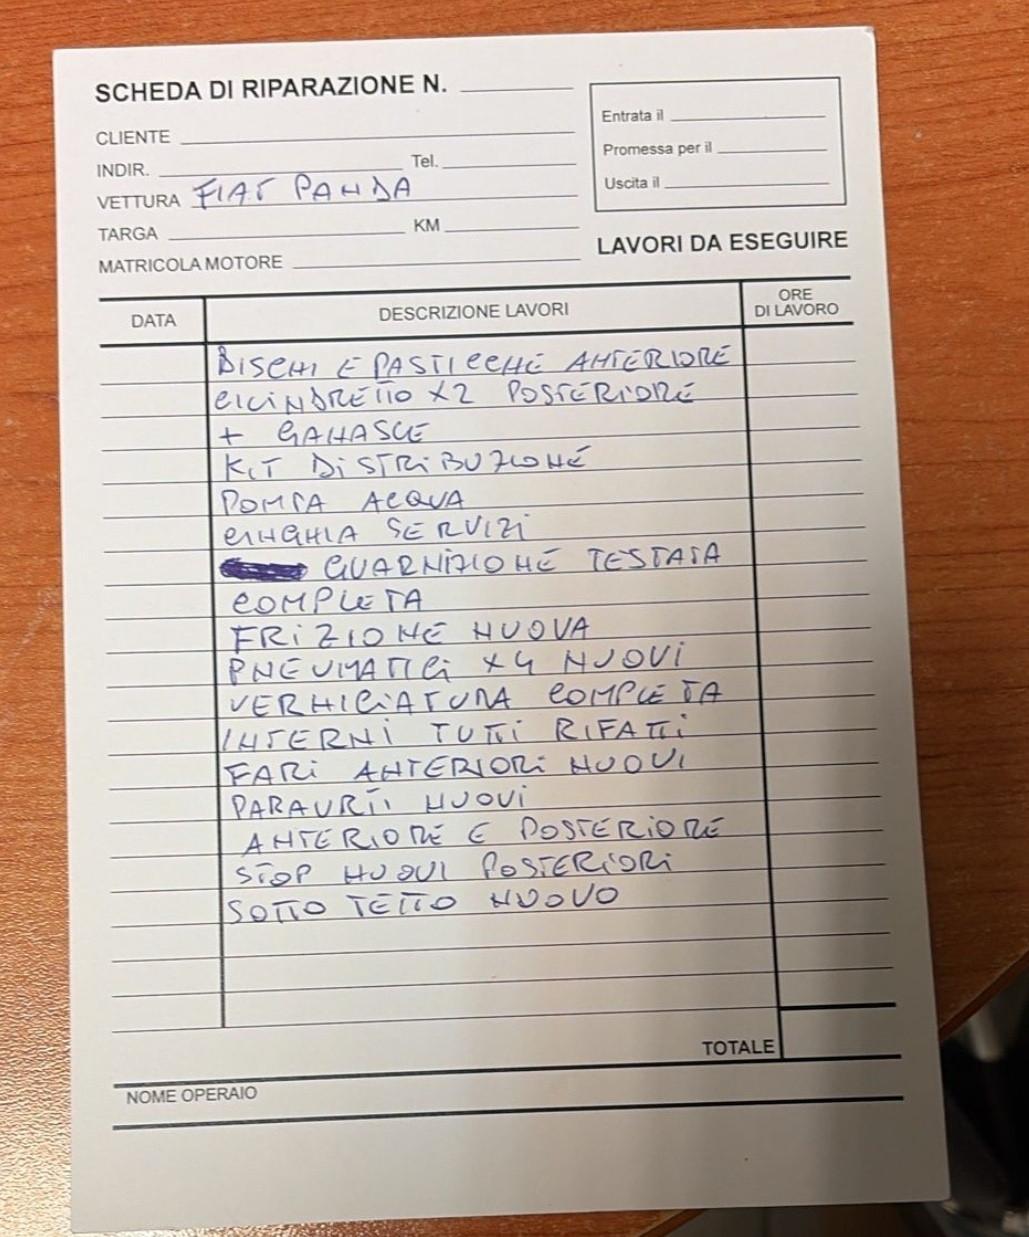 SCHEDA DI RIPARAZIONE N.
CLIENTE
INDIR. Tel.
VETTURA FIAT PANDA
TARGA KM
MATRICOLA MOTORE
Entrata il
Promessa per il
Uscita il
LAVORI DA ESEGUIRE
DATA DESCRIZIONE LAVORI ORE DI LAVORO
DISCHI E PASTICCHE ANTERIORE
CILINDRETTO X2 POSTERIORE
+ GANASCE
KIT DISTRIBUZIONE
POMPA ACQUA
CINGHIA SERVIZI
GUARNIZIONE TESTATA
COMPLETA
FRIZIONE NUOVA
PNEUMATICI X4 NUOVI
VERNICIATURA COMPLETA
INTERNI TUTTI RIFATTI
FARI ANTERIORI NUOVI
PARAURTI NUOVI
ANTERIORE E POSTERIORE
STOP NUOVI POSTERIORI
SOTTO TETTO NUOVO
TOTALE
NOME OPERAIO